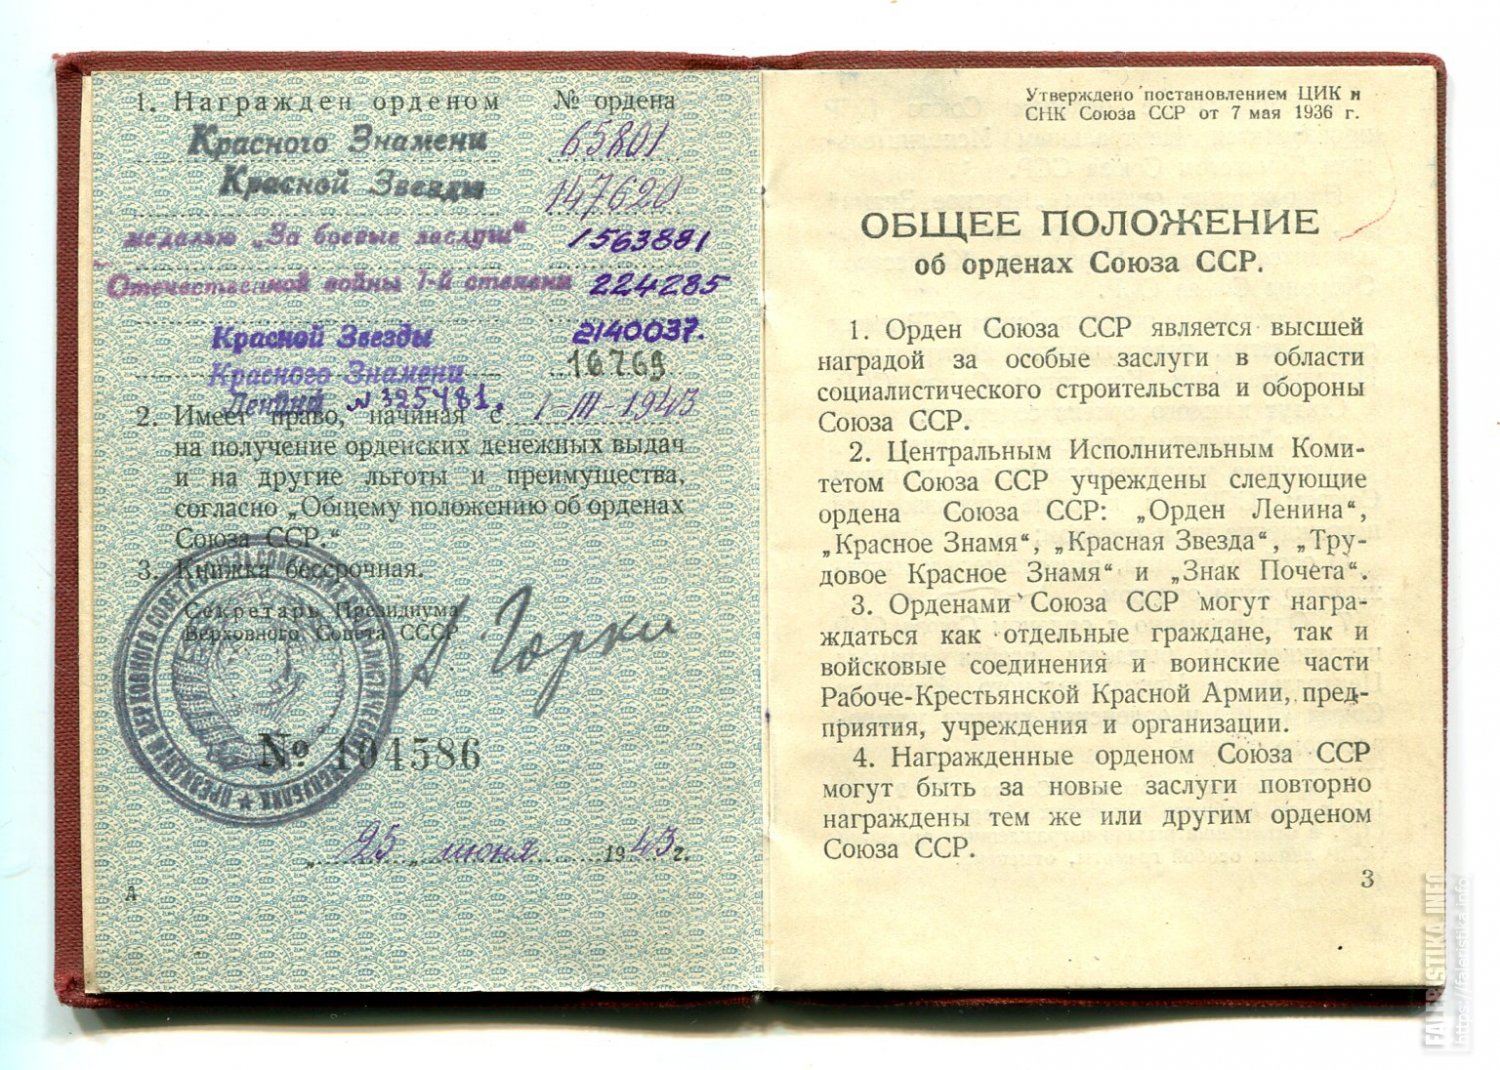 1. Награжден орденом № ордена
Красного Знамени 65801
Красной Звезды 147620
медалью „За боевые заслуги“ 1563881
Отечественной войны 1-й степени 224285
Красной Звезды 2140037.
Красного Знамени 16769
Ленина № 325481.
2. Имеет право, начиная с 1-III-1943
на получение орденских денежных выдач
и на другие льготы и преимущества,
согласно „Общему положению об орденах
Союза ССР.“
3. Книжка бессрочная.
Секретарь Президиума
Верховного Совета СССР
А Горкин
№ 104586
„ 25 „ июня 1943 г.
А
Утверждено постановлением ЦИК и
СНК Союза ССР от 7 мая 1936 г.
ОБЩЕЕ ПОЛОЖЕНИЕ
об орденах Союза ССР.
1. Орден Союза ССР является высшей
наградой за особые заслуги в области
социалистического строительства и обороны
Союза ССР.
2. Центральным Исполнительным Коми-
тетом Союза ССР учреждены следующие
ордена Союза ССР: „Орден Ленина“,
„Красное Знамя“, „Красная Звезда“, „Тру-
довое Красное Знамя“ и „Знак Почета“.
3. Орденами Союза ССР могут награ-
ждаться как отдельные граждане, так и
войсковые соединения и воинские части
Рабоче-Крестьянской Красной Армии, пред-
приятия, учреждения и организации.
4. Награжденные орденом Союза ССР
могут быть за новые заслуги повторно
награждены тем же или другим орденом
Союза ССР.
3
FALERISTIKA.INFO
https://faleristika.info